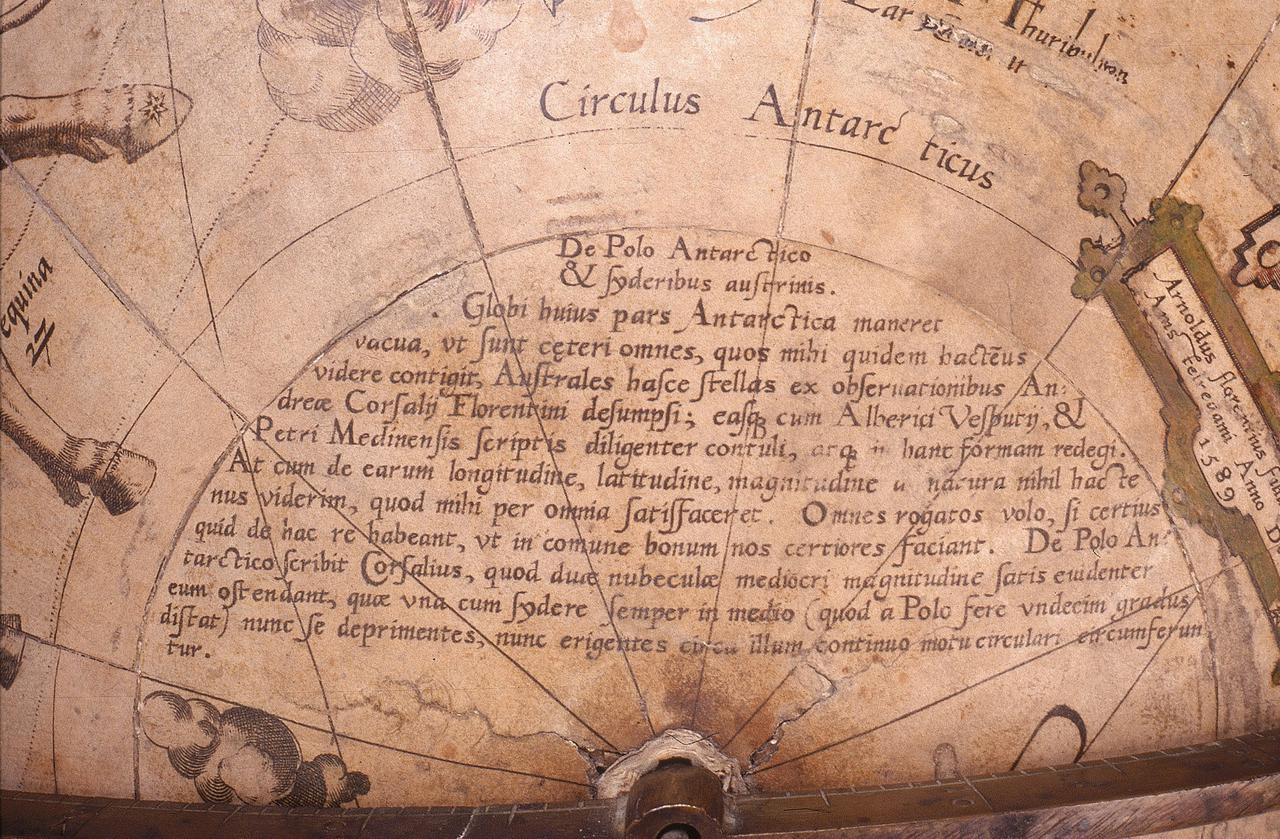 Thuribulum
Circulus Antarcticus
equina
De Polo Antarctico
& syderibus austrinis.
Globi huius pars Antarctica maneret
vacua, vt sunt cęteri omnes, quos mihi quidem hactēus
videre contigit, Australes hasce stellas ex obseruationibus An:
dreæ Corsalij Florentini desumpsi; easq́ cum Alberici Vesputij, &
Petri Medinensis scriptis diligenter contuli, atq́ in hanc formam redegi.
At cum de earum longitudine, latitudine, magnitudine a natura nihil hacte
nus viderim, quod mihi per omnia satisfaceret. Omnes rogatos volo, si certius
quid de hac re habeant, vt in comune bonum nos certiores faciant. De Polo An:
tarctico scribit Corsalius, quod duæ nubeculæ mediocri magnitudine satis euidenter
eum ostendant, quæ vna cum sydere semper in medio (quod a Polo fere vndecim gradus
distat) nunc se deprimentes, nunc erigentes circa illum continuo motu circulari circumferun
tur.
Arnoldus florentius
Amstelredami Anno
1589